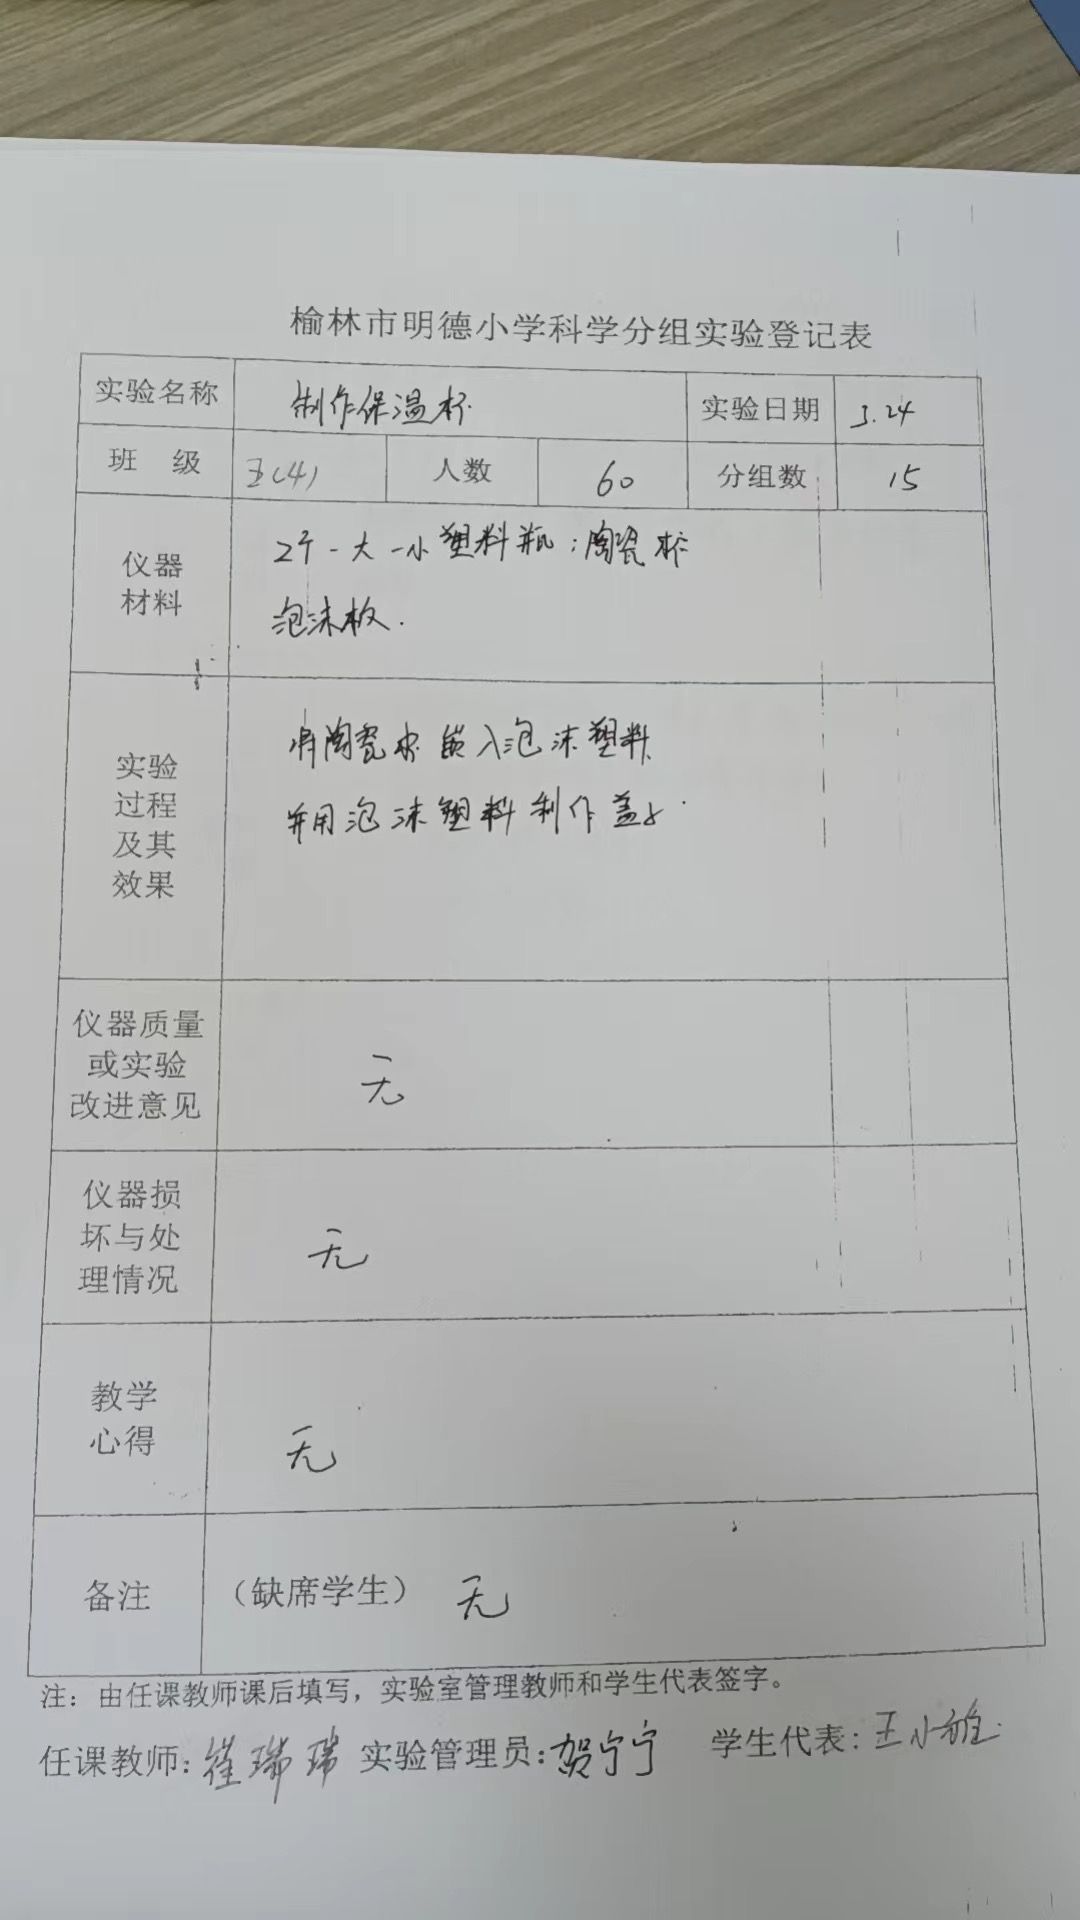 榆林市明德小学科学分组实验登记表
实验名称 制作保温杯 实验日期 3.24
班 级 五(4) 人数 60 分组数 15
仪器材料 2个一大一小塑料瓶；陶瓷杯
泡沫板.
实验过程及其效果 将陶瓷杯嵌入泡沫塑料
并用泡沫塑料制作盖子.
仪器质量或实验改进意见 无
仪器损坏与处理情况 无
教学心得 无
备注 （缺席学生） 无
注：由任课教师课后填写，实验室管理教师和学生代表签字。
任课教师：崔瑞瑞 实验管理员：贺宁宁 学生代表：王小